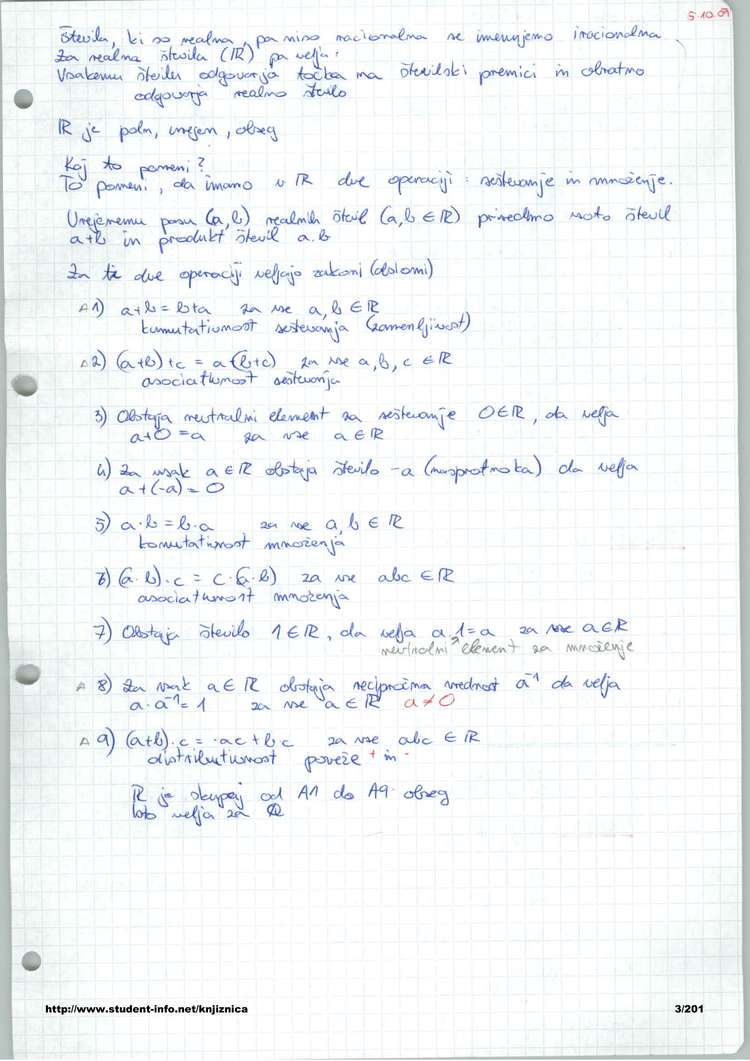 5.10.09
Števila, ki so realna, pa niso racionalna se imenujemo iracionalna.
Za realna števila (ℝ) pa velja:
Vsakemu številu odgovarja točka na številski premici in obratno
odgovarja realno število
ℝ je poln, urejen, obseg
Kaj to pomeni?
To pomeni, da imamo v ℝ dve operaciji: seštevanje in množenje.
Urejenemu paru (a,b) realnih števil (a,b ∈ ℝ) priredimo vsoto števil
a+b in produkt števil a.b
Za te dve operaciji veljajo zakoni (aksiomi)
A 1) a+b = b+a za vse a, b ∈ ℝ
komutativnost seštevanja (zamenljivost)
A 2) (a+b)+c = a+(b+c) za vse a, b, c ∈ ℝ
asociativnost seštevanja
3) Obstaja neutralni element za seštevanje 0∈ℝ, da velja
a+0 = a za vse a∈ℝ
4) Za vsak a∈ℝ obstaja število -a (nasprotno a) da velja
a+(-a) = 0
5) a·b = b·a za vse a, b ∈ ℝ
komutativnost množenja
6) (a·b)·c = c·(a·b) za vse abc ∈ ℝ
asociativnost množenja
7) Obstaja število 1∈ℝ, da velja a.1=a za vse a∈ℝ
neutralni element za množenje
A 8) Za vsak a∈ℝ obstaja recipročna vrednost a⁻¹ da velja
a·a⁻¹ = 1 za vse a∈ℝ a≠0
A 9) (a+b)·c = ·ac+bc za vse abc ∈ ℝ
distributivnost poveže + in ·
ℝ je skupaj od A1 do A9 obseg
isto velja za ℚ
http://www.student-info.net/knjiznica
3/201